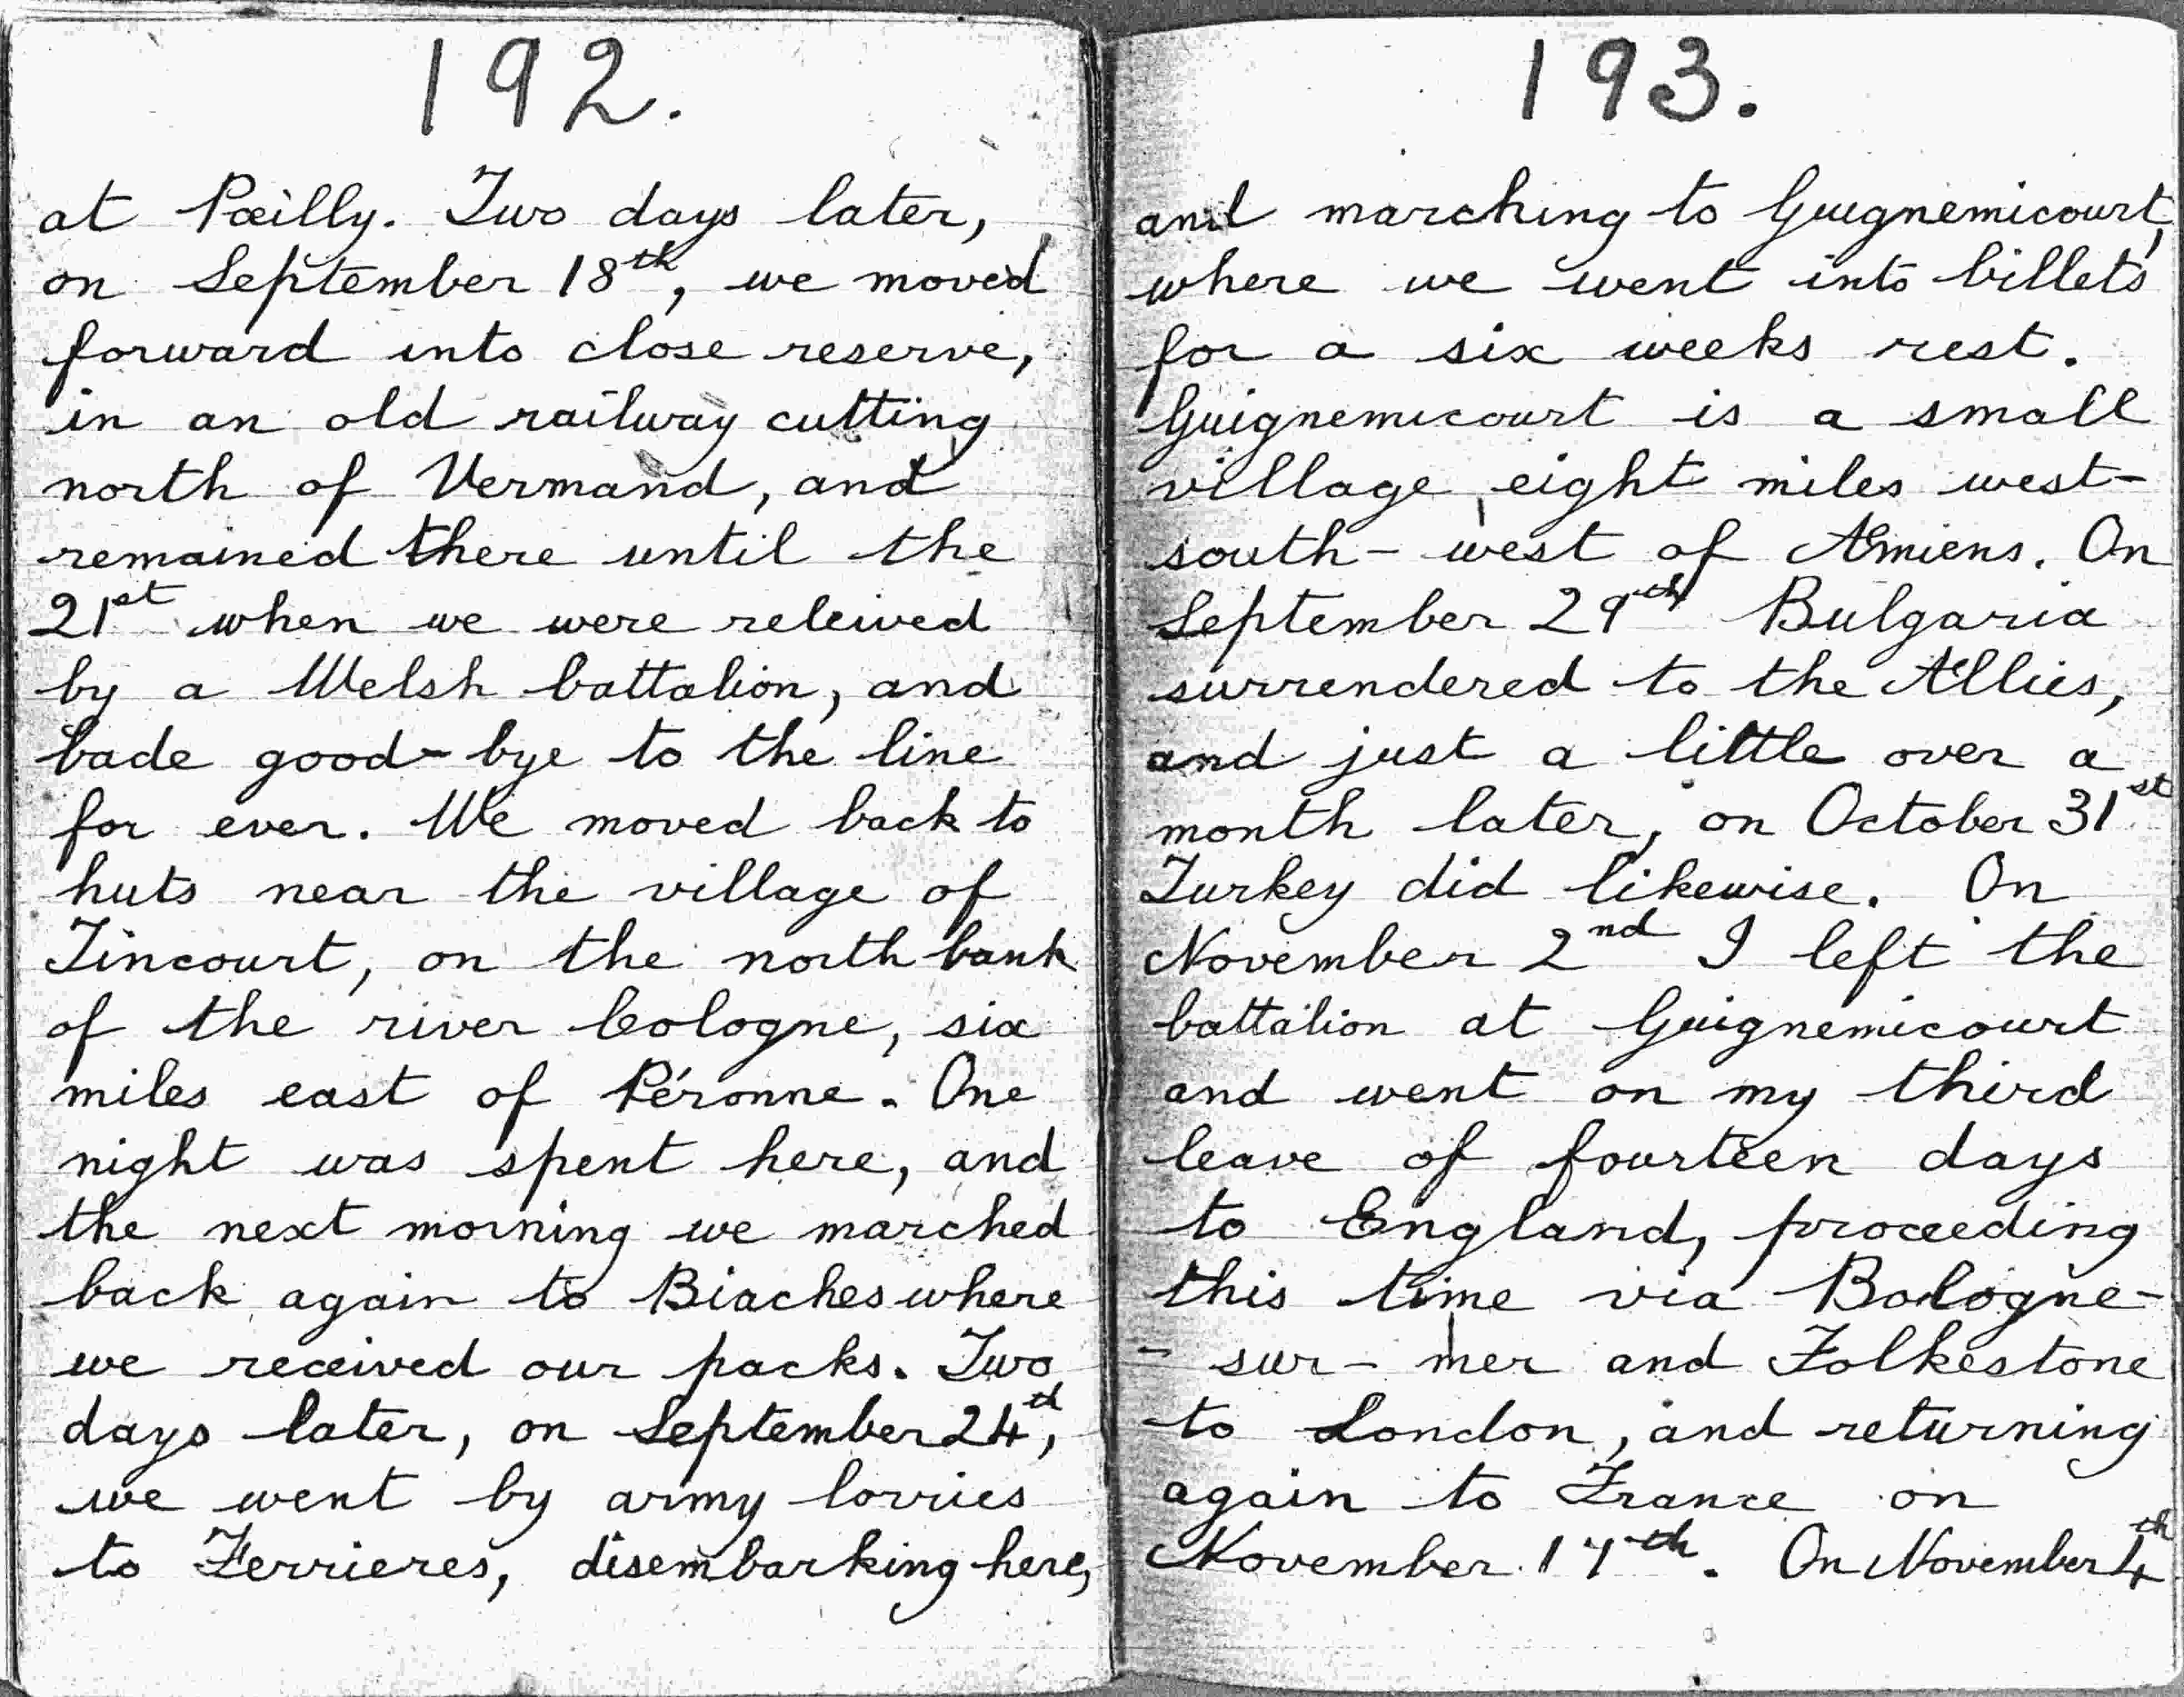 192.
at Pœilly. Two days later,
on September 18th, we moved
forward into close reserve,
in an old railway cutting
north of Vermand, and
remained there until the
21st when we were releived
by a Welsh battalion, and
bade good-bye to the line
for ever. We moved back to
huts near the village of
Tincourt, on the north bank
of the river Cologne, six
miles east of Péronne. One
night was spent here, and
the next morning we marched
back again to Biaches where
we received our packs. Two
days later, on September 24th,
we went by army lorries
to Ferrieres, disembarking here,
193.
and marching to Guignemicourt,
where we went into billets
for a six weeks rest.
Guignemicourt is a small
village, eight miles west-
south-west of Amiens. On
September 29th Bulgaria
surrendered to the Allies,
and just a little over a
month later, on October 31st
Turkey did likewise. On
November 2nd I left the
battalion at Guignemicourt
and went on my third
leave of fourteen days
to England, proceeding
this time via Bologne-
- sur-mer and Folkestone
to London, and returning
again to France on
November 17th. On November 4th